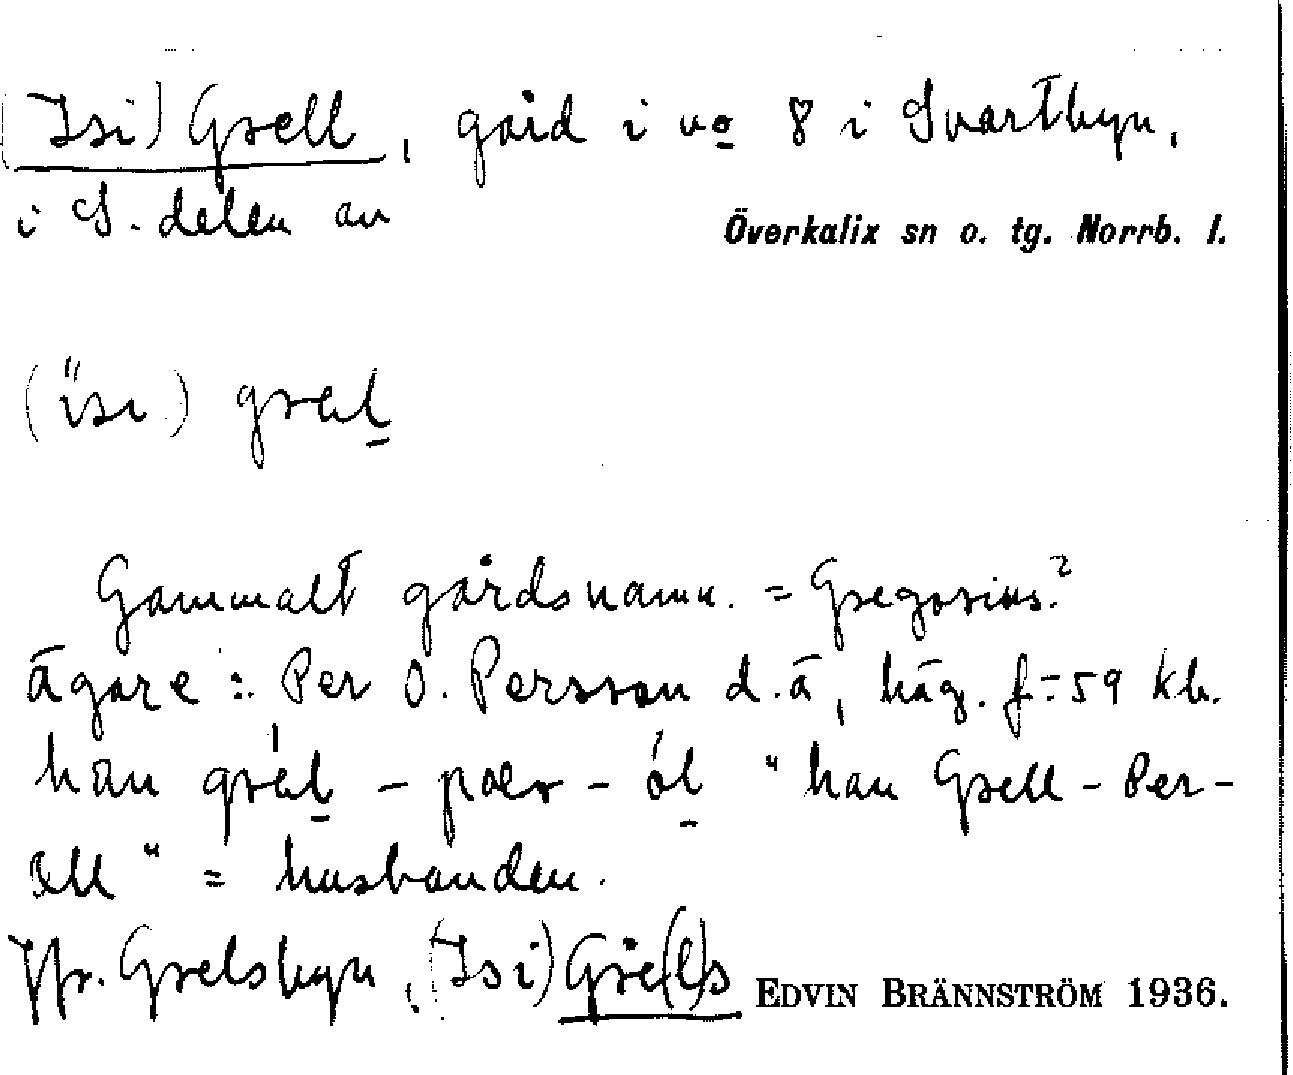 (Isi) Grell, gård i no 8 i Svartbyn,
i S. delen av
Överkalix sn o. tg. Norrb. l.
(ïsı) gręl
Gammalt gårdsnamn. = Gregorius?
ägare: Per O. Persson d.ä, häg. f. -59 kb.
han grel - pær - ól "han Grell-Per-
Oll" = husbonden.
Jfr. Grelsbyn, (Isi) Gre(l)s
EDVIN BRÄNNSTRÖM 1936.